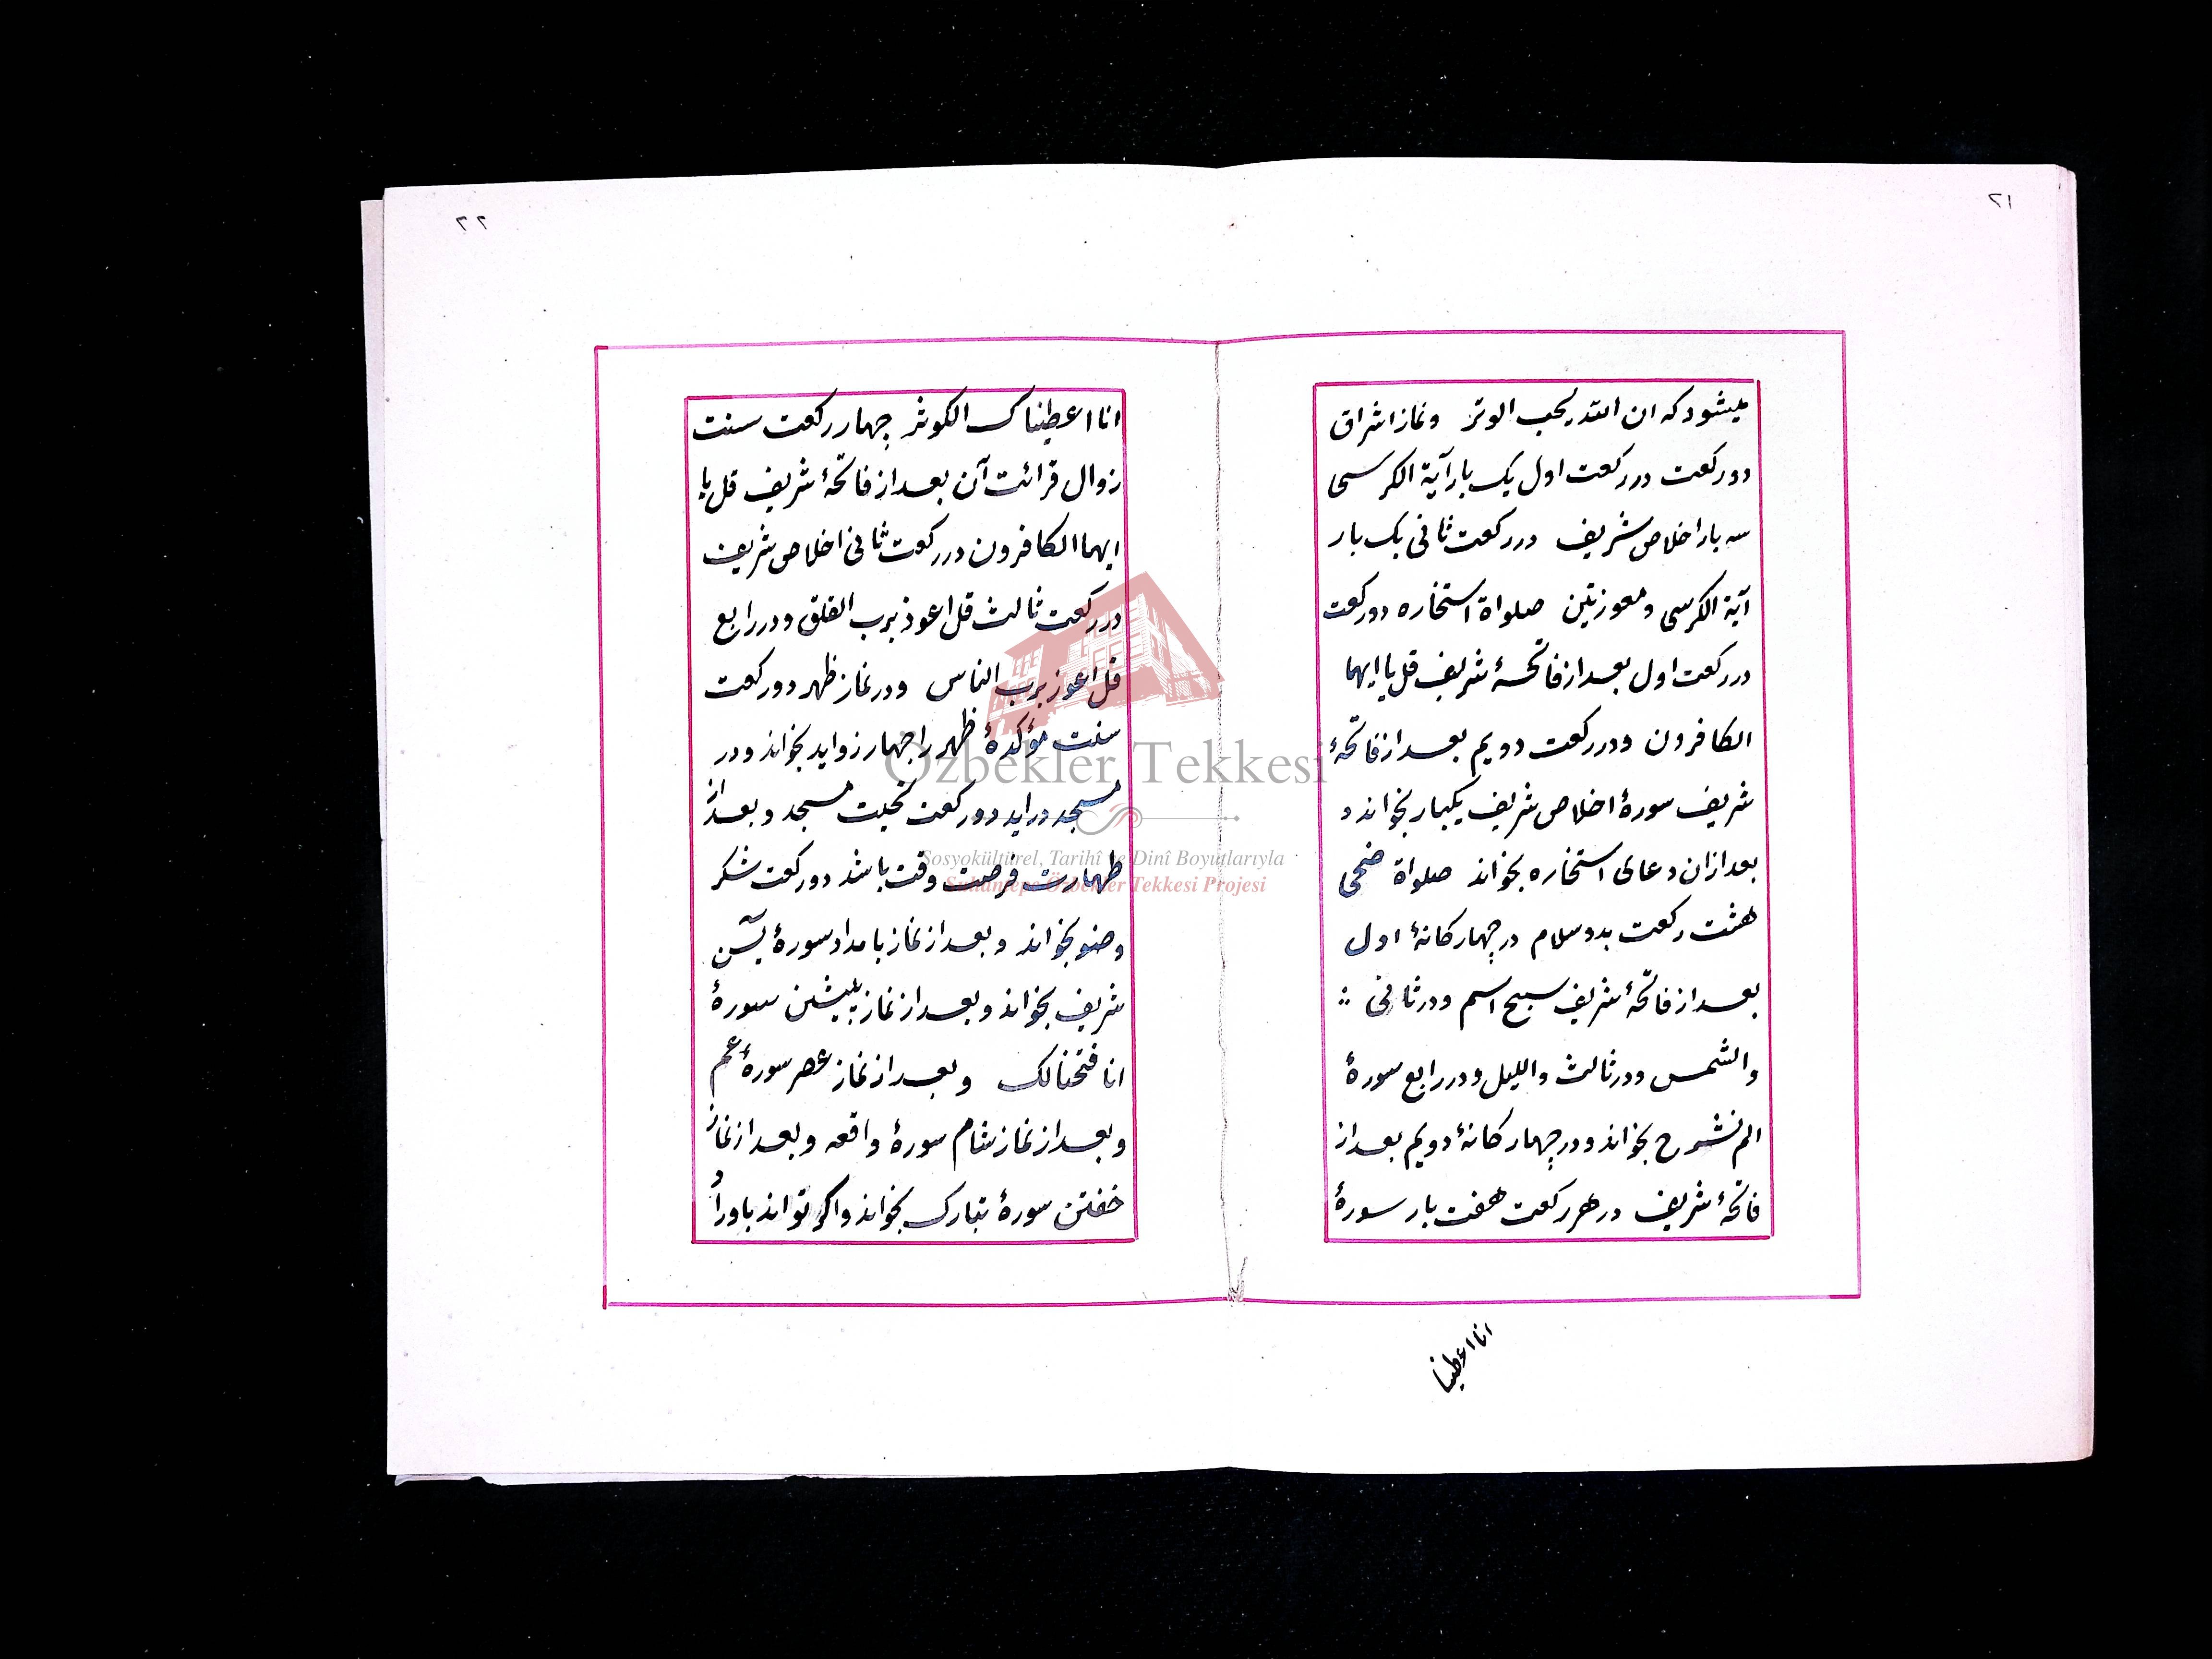 ٢١
میشود که ان الله یحب الوتر و نماز اشراق
دو رکعت در رکعت اول یک بار آیة الکرسی
سه بار اخلاص شریف در رکعت ثانی یک بار
آیة الکرسی و معوزتین صلواة استخاره دو رکعت
در رکعت اول بعد از فاتحهٔ شریف قل یا ایها
الکافرون و در رکعت دویم بعد از فاتحهٔ
شریف سورهٔ اخلاص شریف یکبار بخواند و
بعد ازان دعای استخاره بخواند صلواة ضحی
هشت رکعت بدو سلام در چهار کانهٔ اول
بعد از فاتحهٔ شریف سبح اسم و در ثانی
والشمس و در ثالث واللیل و در رابع سورهٔ
الم نشرح بخواند و در چهار کانهٔ دویم بعد از
فاتحهٔ شریف در هر رکعت هفت بار سورهٔ
انا اعطینا
٢٢
انا اعطیناک الکوثر چهار رکعت سنت
زوال قرائت آن بعد از فاتحهٔ شریف قل یا
ایها الکافرون در رکعت ثانی اخلاص شریف
در رکعت ثالث قل اعوذ برب الفلق و در رابع
قل اعوز برب الناس و در نماز ظهر دو رکعت
سنت مؤکدهٔ ظهر را چهار زواید بخواند و در
مسجد دراید دو رکعت تحیت مسجد و بعد از
طهارت فرصت وقت باشد دو رکعت شکر
وضو بخواند و بعد از نماز بامداد سورهٔ یٓسن
شریف بخواند و بعد از نماز پیشین سورهٔ
انا فتحنا لک و بعد از نماز عصر سورهٔ عم
و بعد از نماز شام سورهٔ واقعه و بعد از نماز
خفتن سورهٔ تبارک بخواند و اکر تواند باوراد
Özbekler Tekkesi
Sosyokültürel, Tarihî ve Dinî Boyutlarıyla
Sultantepe Özbekler Tekkesi Projesi